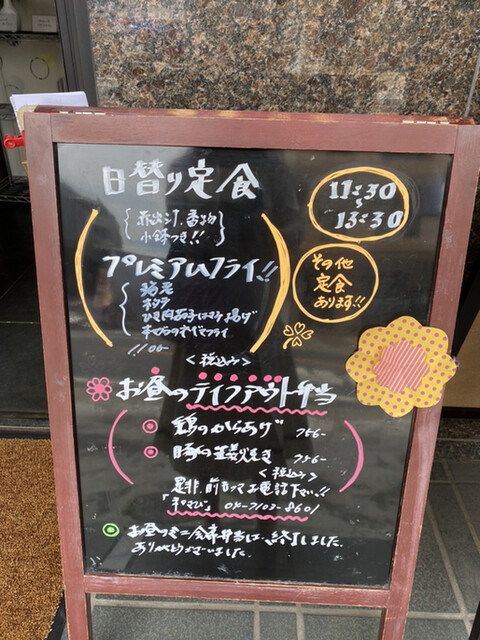 日替り定食
11:30
~
13:30
赤出汁、香物
小鉢つき!!
プレミアムフライ!!
その他
定食
あります!!
海老
ホタテ
ひき肉茄子はさみ揚げ
1100-
<税込み>
お昼のテイクアウト弁当
鶏のからあげ 756-
豚の生姜焼き 756-
<税込み>
是非、前もってお電話下さい!!
04-7103-8601
お昼のミニ会席弁当は、終了しました。
ありがとうございました。